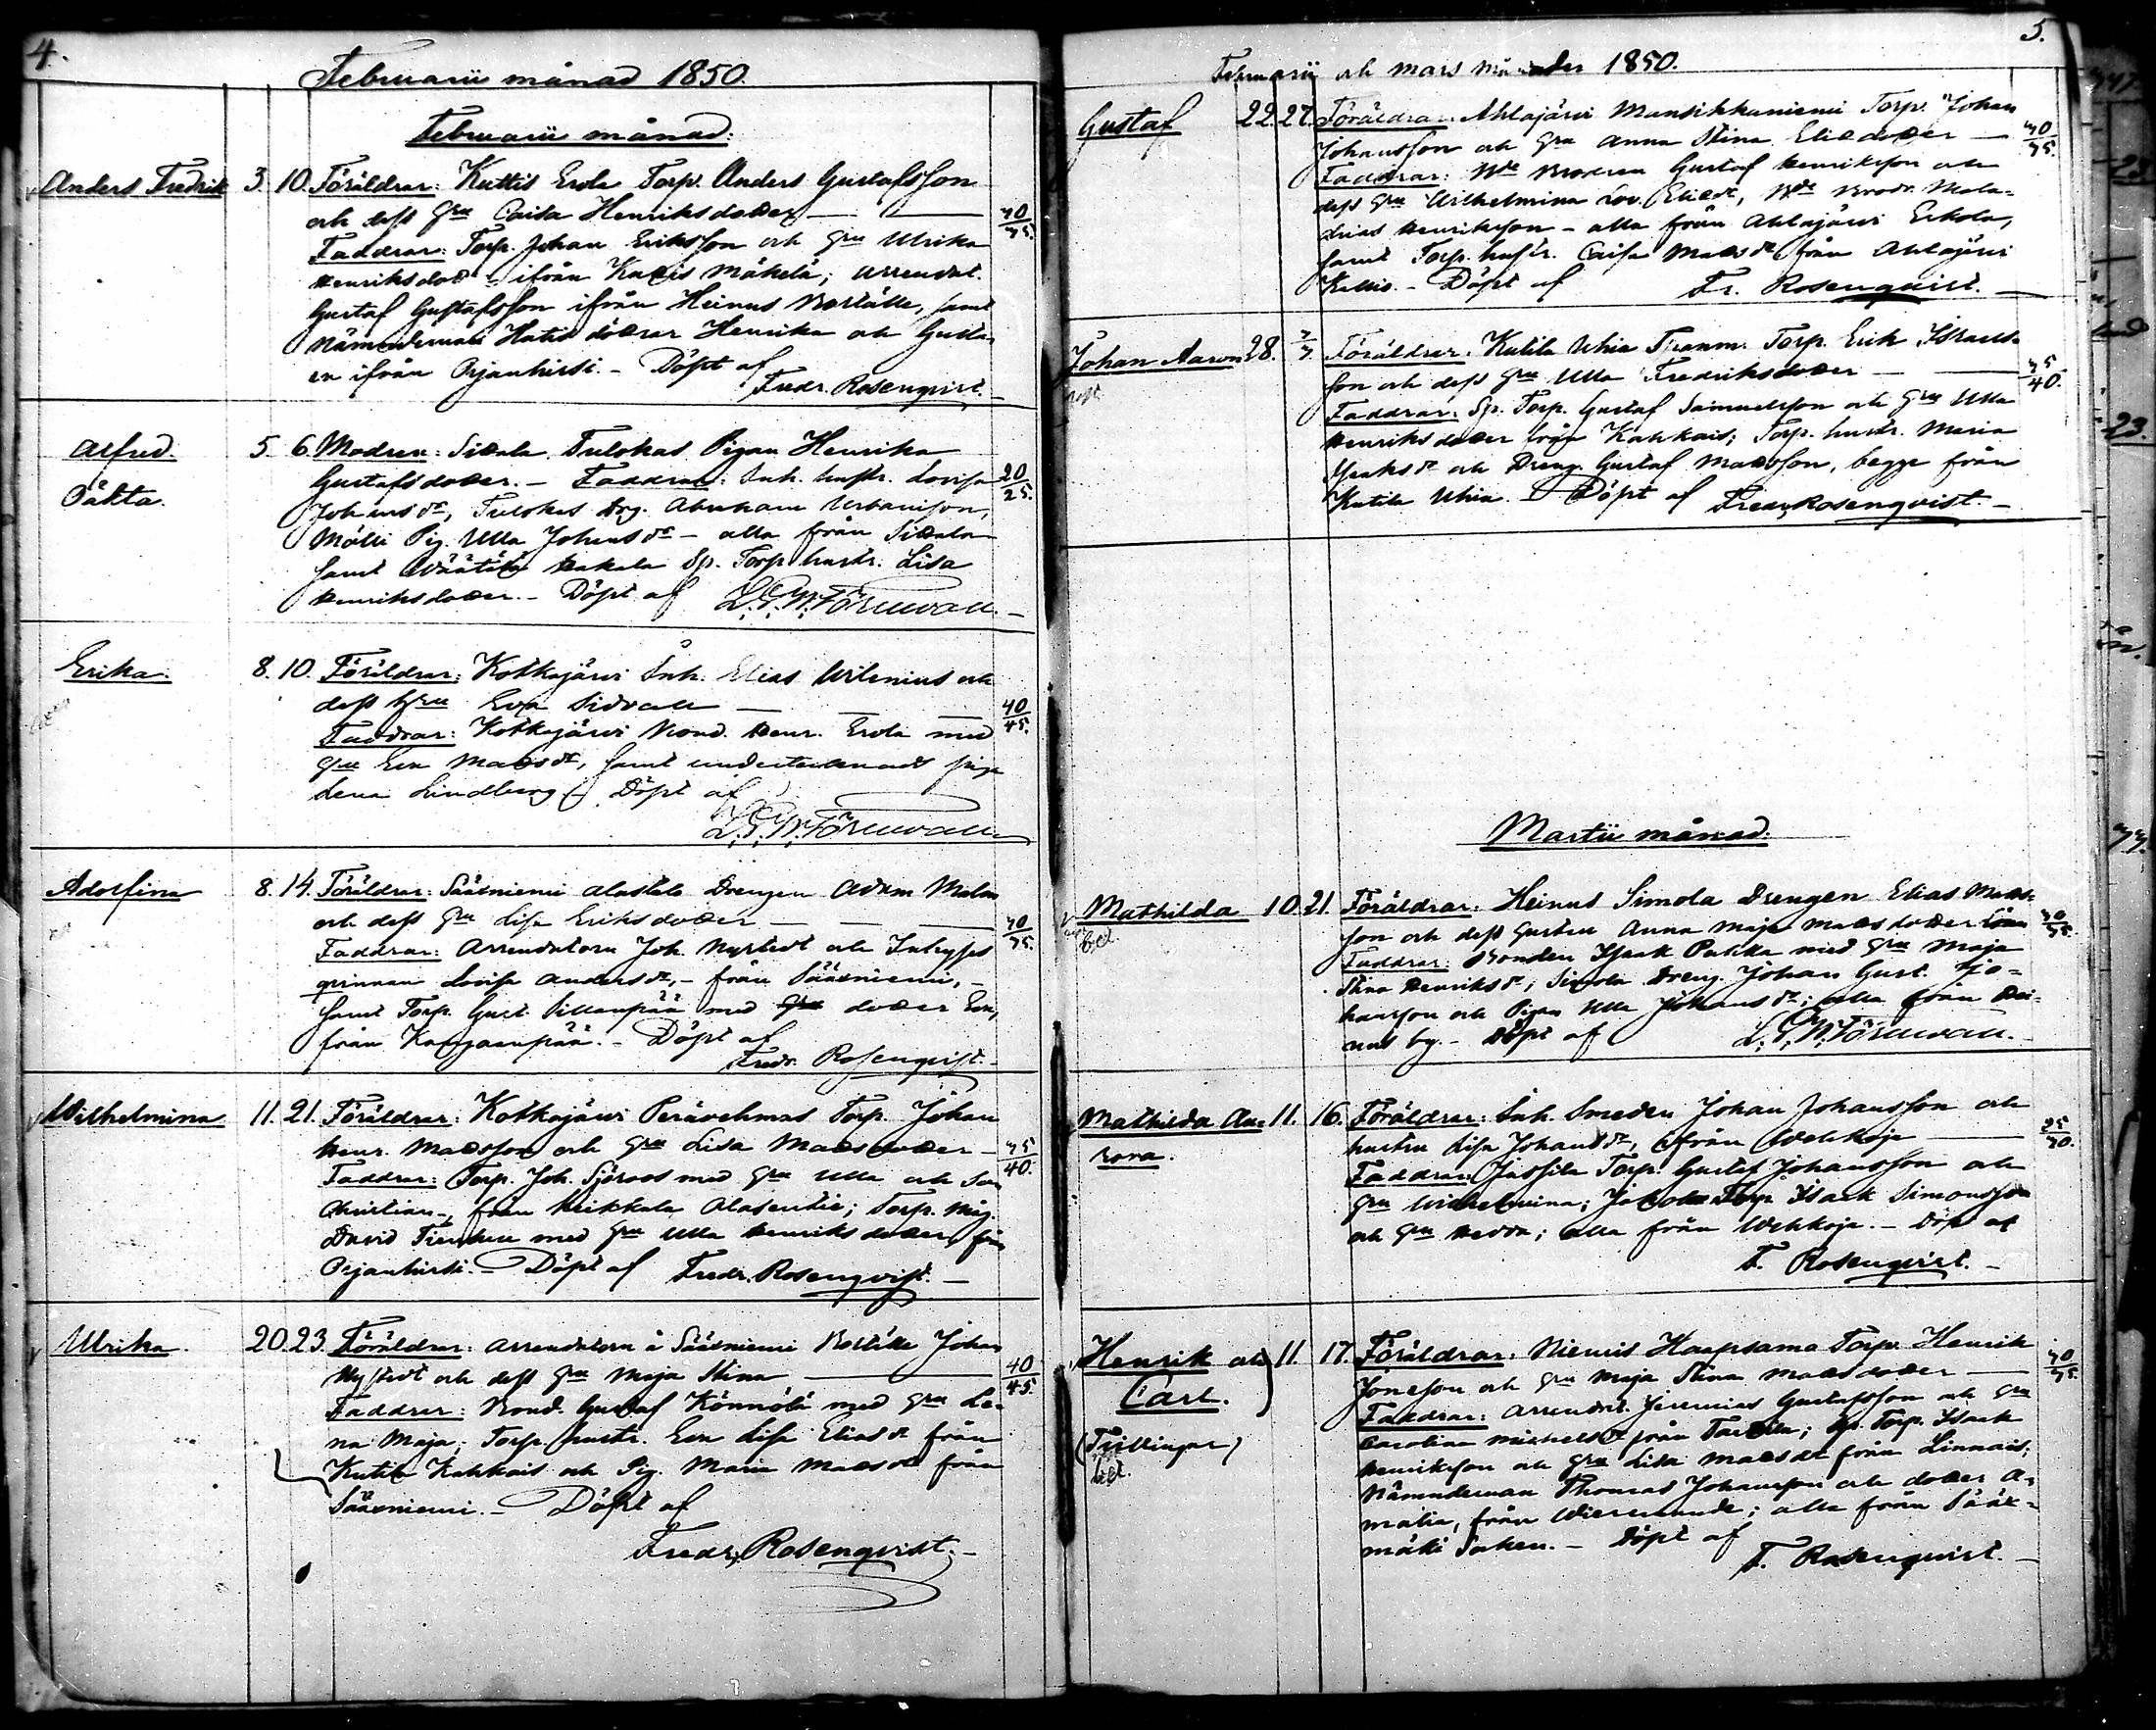 4.
Februarii månad 1850.
Februarii månad:
Anders Fredrik 3. 10. Föräldrar: Kuttis Erola Torp. Anders Gustafsson
och dess hru Caisa Henriksdotter
Faddrar: Torp. Johan Eriksson och hru Ulrika
Henriksdott: ifrån Mäkelä; Arrendat.
Gustaf Gustafsson ifrån Heinus Boställe, samt
Nämndeman döttrar Henrika och Gusta-
va ifrån Pijanhirsi. - Döpt af
Fredr. Rosenqvist.
Alfred. 5. 6. Modren: Tulokas Pigan Henrika 20
Oäkta. Gustafsdotter. - Faddrar: Inh. hustr. Lovisa 25.
Johansdr, Tulokas drg. Abraham Urbansson,
Mölli Pig. Ulla Johansdr - alla från
samt Hakala Sp. Torp. hustr. Lisa
Henriksdotter. - Döpt af L.G.W. Törnwall.
Erika. 8. 10. Föräldrar: Kotkajärvi Inh. Elias Wilenius och
dess hru Eva Sidvall 40
Faddrar: Kotkajärvi Bond. Henr. Erola med 45.
hru Eva Matsdr, samt undertecknads piga
Lena Lindberg. Döpt af
L.G.W. Törnwall.
Adolfina 8. 14. Föräldrar: Sääxniemi Alastalo Drengen Adam Malm
och dess hru Lisa Eriksdotter
Faddrar: Arrendatorn Joh. Nystedt och Inhyses
qvinnan Lovisa Andersdr, - från Sääxniemi, -
samt Torp. Gust. Sillanpää med dotter Eva,
från Kangaanpää. - Döpt af
Fredr. Rosenqvist.
Wilhelmina 11. 21. Föräldrar: Kotkajärvi Perävehmas Torp. Johan
Henr. Matsson och hru Lisa Matsdotter 35
Faddrar: Torp. Joh. Sjöroos med hru Ulla och Son 40.
Christian, från Heikkala; Torp. Måg.
David med hru Ulla Henriksdotter, från
Pijanhirsi. - Döpt af Fredr. Rosenqvist.
Ulrika. 20. 23. Föräldrar: Arrendatorn å Sääxniemi Boställe Johan
Nystedt och dess hru Maja Stina 40
Faddrar: Bond. Gustaf Könnölä med hru Le- 45.
na Maja; Torp. hustr. Eva Lisa Eliasdr från
Kutila Kahkais och Pig. Maria Matsdr från
Sääxniemi. - Döpt af
Fredr. Rosenqvist.
5.
Februarii och Mars Månader 1850.
Gustaf 22. 27. Föräldrar: Ahlajärvi Mansikkaniemi Torp. Johan
Johansson och hru Anna Stina Eliedotter
Faddrar: Bde Brodren Gustaf Henriksson och
dess hru Wilhelmina Lov. Eliedr, Bde Brodr. Mata-
thias Henriksson - alla från Ahlajärvi Erkola,
samt Torp. hustr. Caisa Matsdr från Ahlajärvi
Kallio. - Döpt af Fr. Rosenqvist.
Johan Aaron 28. 3/3. Föräldrar: Kutila Uhia Torp. Erik Israels-
son och dess hru Ulla Fredriksdotter 35
Faddrar: Sp. Torp. Gustaf Samuelsson och hru Ulla 40.
Henriksdotter från Kahkais; Torp. hustr. Maria
Isaksdr och Dreng. Gustaf Matsson, begge från
Kutila Uhia. - Döpt af Fredr. Rosenqvist.
Martii månad.
Mathilda 10. 21. Föräldrar: Heinus Simola Drengen Elias Mats-
son och dess hustru Anna Maja Matsdotter
Faddrar: Bonden Isaak Pukka med hru Maja
Stina Henriksdr, Simola Dreng. Johan Gust. Jo-
hansson och Pigan Ulla Johansdr; alla från Hei-
nus by. - Döpt af L.G.W. Törnwall.
Mathilda Au- 11. 16. Föräldrar: Inh. Smeden Johan Johansson och
rora. hustru Lisa Johansdr, ifrån Wehkoja
Faddrar: Jussila Torp. Gustaf Johansson och
hru Wilhelmina; Torp. Isaak Simonsson
och hru Hedda; alla från Wehkoja. - Döpt af
F. Rosenqvist.
Henrik och 11. 17. Föräldrar: Niemis Haapsama Torp. Henrik
Carl. Jonesson och hru Maja Stina Matsdotter
(Tvillingar) Faddrar: Arrendat. Jeremias Gustafsson och hru
Carolina Michelsdr från; Sp. Torp. Isaak
Henriksson och hru Lisa Matsdr från Linnais;
Nämndeman Thomas Johansson och dotter A-
malia, från; alla från Sääx-
mäki Soken. - Döpt af
F. Rosenqvist.